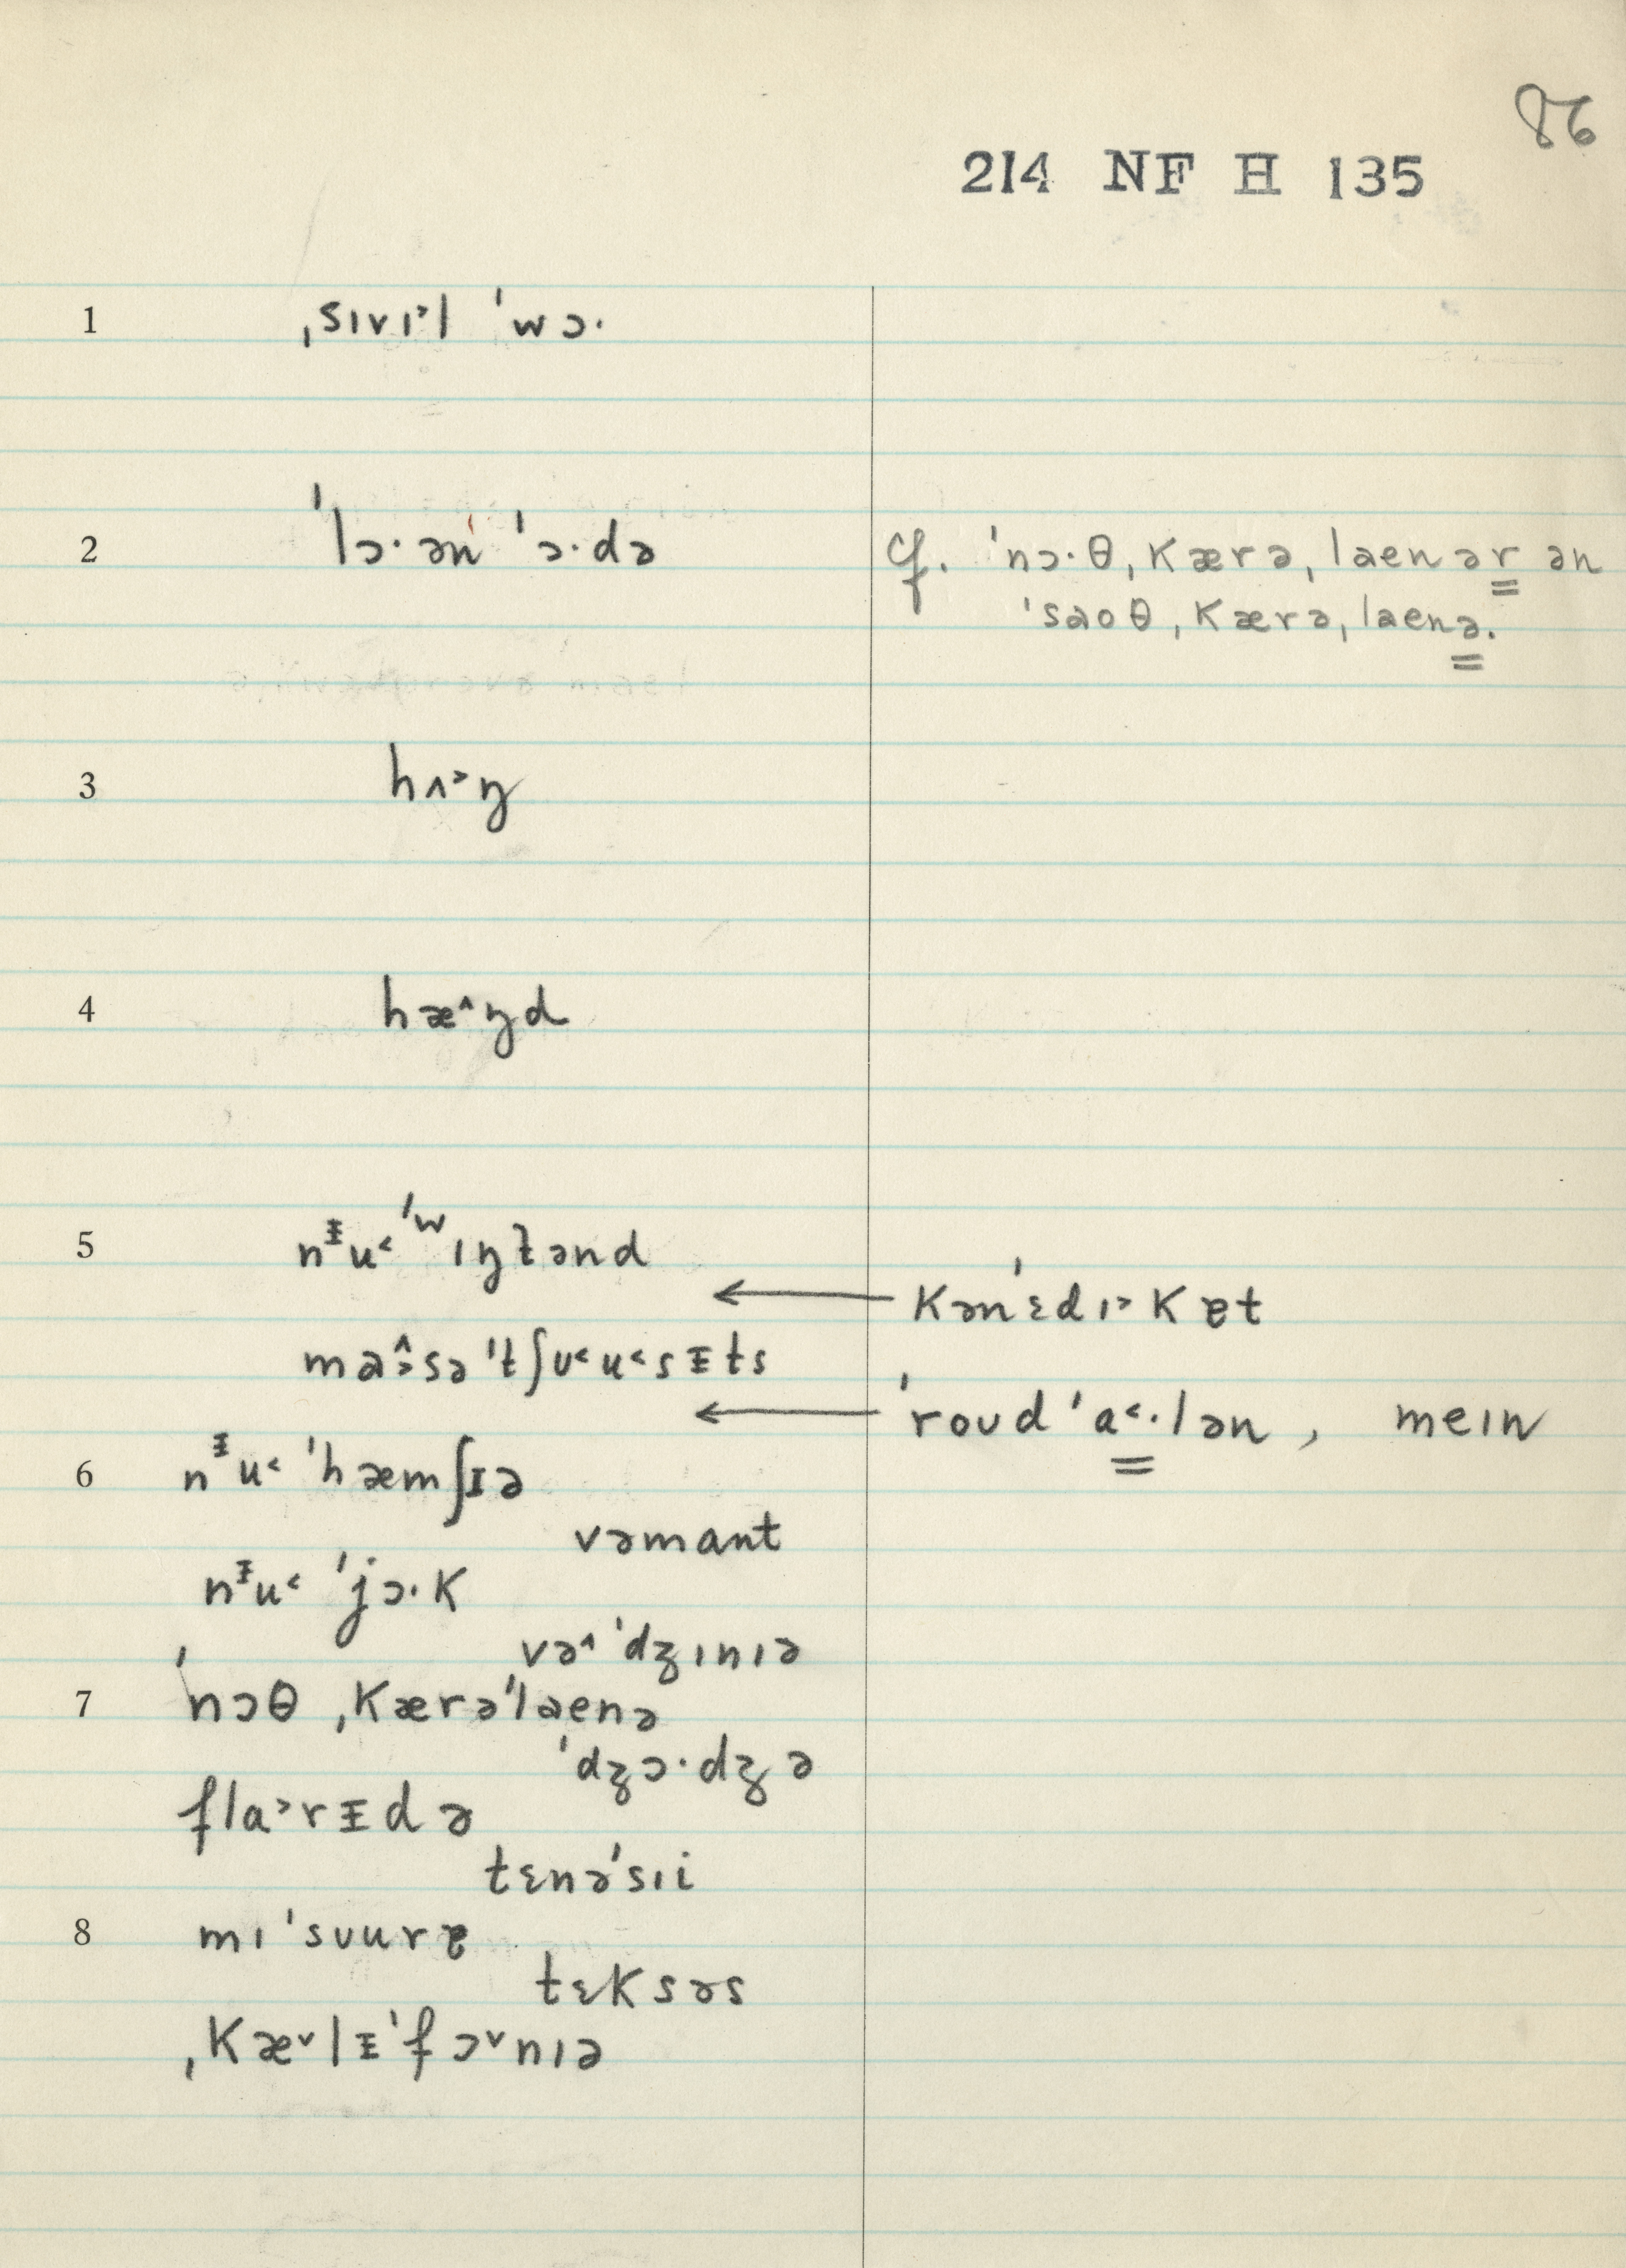 86
214 NF H 135
1 ˌsɪvɪ˃l ˈwɔ·
2 ˈlɔ· ən ˈɔ·də cf. ˈnɔ·θ ˌkærəˌlaenər ən
ˈsaoθ ˌkærəˌlaenə.
3 hʌ˃ŋ
4 hæ^ŋd
5 nᵻu˂ ˈwɪŋɫənd
← kənˈɛdɪ˃kɐt
masəˈtʃʊ˂u˂sᵻts
← ˈroʊd ˈa˂·lən, meɪn
6 nᵻu˂ ˈhæmʃɪə
vəmant
nᵻu˂ ˈjɔ·k
və^ˈdʒɪnɪə
7 ˈnɔθ ˌkærəˈlaenə
ˈdʒɔ·dʒə
fla˃rᵻdə
tɛnəˈsɪi
8 mɪˈsʊurɐ
tɛksəs
ˌkæ˅lᵻˈfɔ˅nɪə